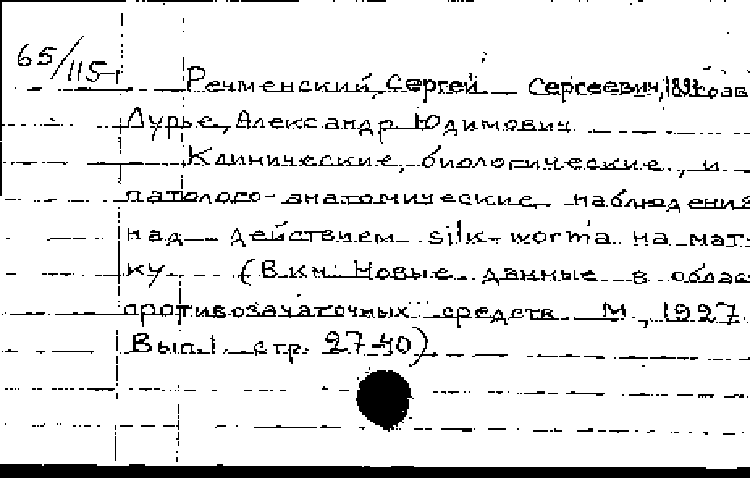 65/115
Речменский, Сергей Сергеевич,
Лурье, Александр Юдимович
Клинические, биологические, и
патолого-анатомические наблюдения
над действием silk-worm'a на мат-
ку (В кн: Новые данные в облас
противозачаточных средств М, 1927
Вып.1 стр. 27-40)